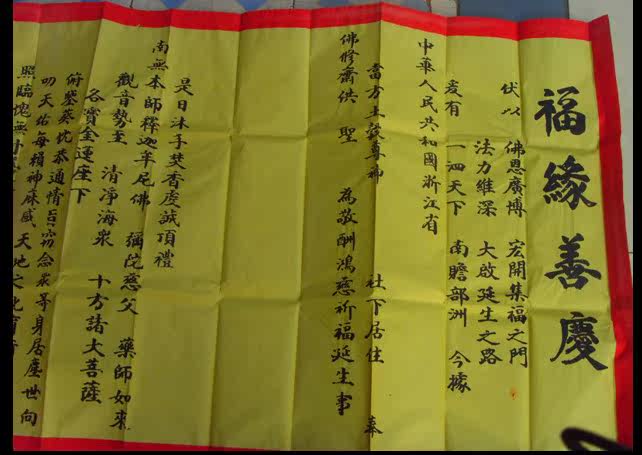 福緣善慶
伏以 佛恩廣博 宏開集福之門
法力維深 大啟延生之路
爰有 一四天下 南贍部洲 今據
中華人民共和國浙江省
當方土穀尊神 社下居住 奉
佛修齋供聖 為敬酬鴻慈祈福延生事
是日沐手焚香虔誠頂禮
南無本師釋迦牟尼佛 彌陀慈父 藥師如來
觀音勢至 清淨海衆 十方諸大菩薩
各寶金蓮座下
俯鑒葵忱恭通情旨窃念衆等身居塵世向
叨天佑每賴神庥感天地
照臨愧無